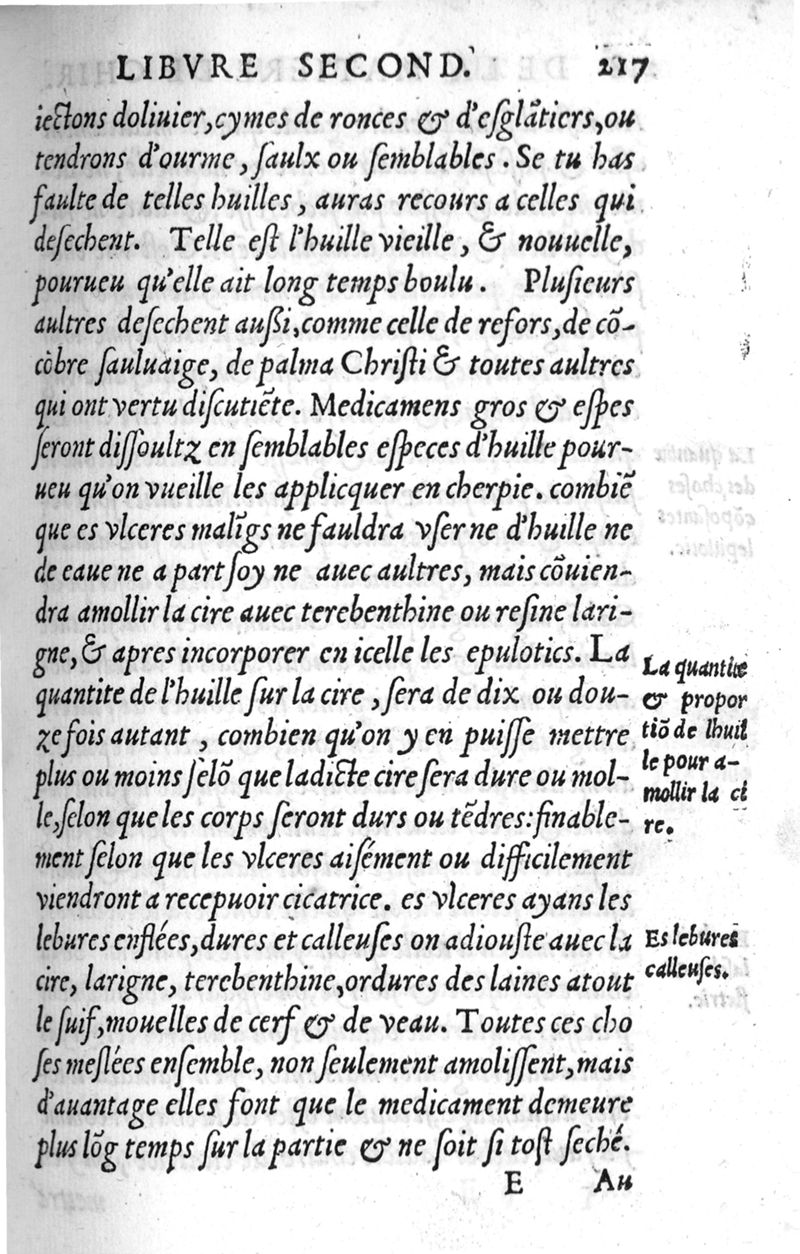 LIBVRE SECOND. 217
iectons doliuier, cymes de ronces & d'esglãtiers, ou
tendrons d'ourme, saulx ou semblables. Se tu has
faulte de telles huilles, auras recours a celles qui
desechent. Telle est l'huille vieille, & nouuelle,
pourueu qu'elle ait long temps boulu. Plusieurs
aultres desechent aussi, comme celle de refors, de cõ-
cõbre sauluaige, de palma Christi & toutes aultres
qui ont vertu discutiẽte. Medicamens gros & espes
seront dissoultz en semblables especes d'huille pour-
ueu qu'on vueille les applicquer en cherpie. combiẽ
que es vlceres malĩgs ne fauldra vser ne d'huille ne
de eaue ne a part soy ne auec aultres, mais cõuien-
dra amollir la cire auec terebenthine ou resine lari-
gne, & apres incorporer en icelle les epulotics. La
quantite de l'huille sur la cire, sera de dix ou dou-
ze fois autant, combien qu'on y en puisse mettre
plus ou moins selõ que ladicte cire sera dure ou mol-
le, selon que les corps seront durs ou tẽdres: finable-
ment selon que les vlceres aisément ou difficilement
viendront a recepuoir cicatrice. es vlceres ayans les
lebures enflées, dures et calleuses on adiouste auec la
cire, larigne, terebenthine, ordures des laines atout
le suif, mouelles de cerf & de veau. Toutes ces cho
ses meslées ensemble, non seulement amolissent, mais
d'auantage elles font que le medicament demeure
plus lõg temps sur la partie & ne soit si tost seché.
E Au
La quantite
& propor
tiõ de lhuil
le pour a-
mollir la ci
re.
Es lebures
calleuses.